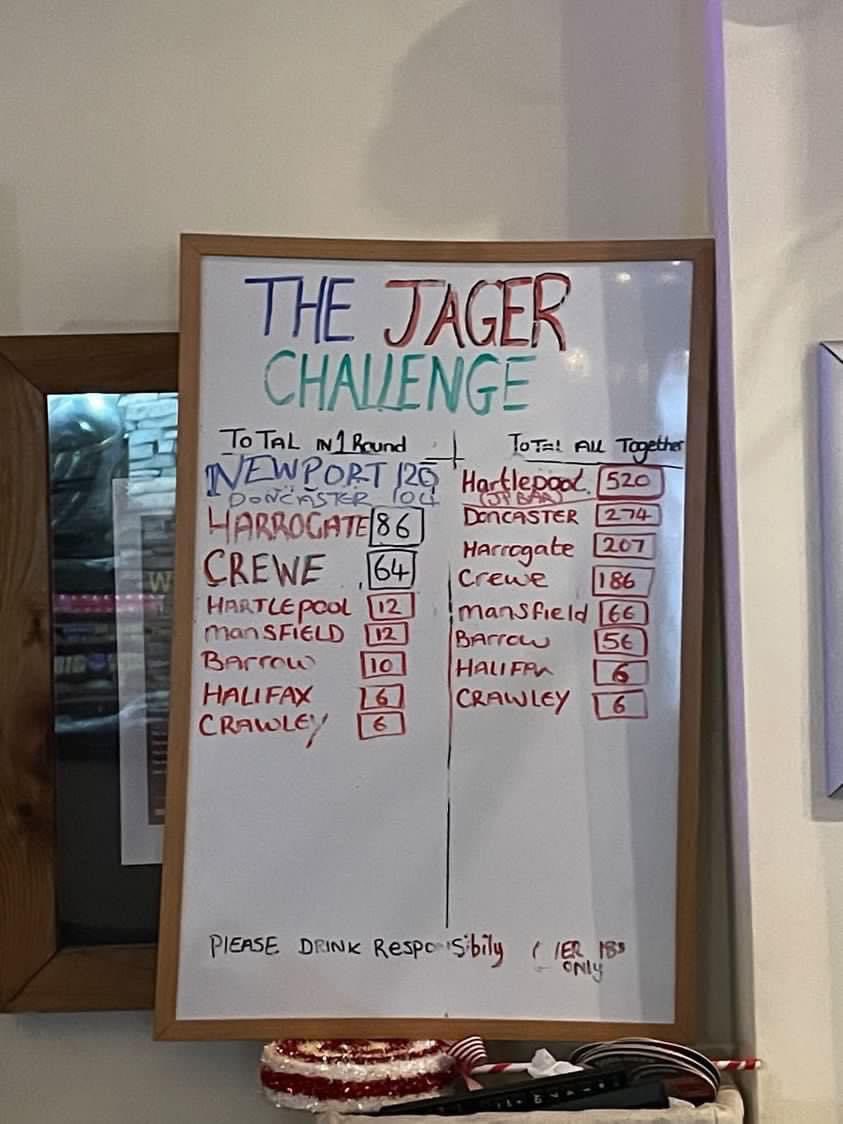 THE JAGER
CHALLENGE
TOTAL IN 1 Round
NEWPORT 120
DONCASTER 104
HARROGATE 86
CREWE 64
HARTLEPOOL 12
MANSFIELD 12
BARROW 10
HALIFAX 6
CRAWLEY 6
TOTAL ALL Together
Hartlepool 520
(JP BAR)
DONCASTER 274
Harrogate 207
Crewe 186
mansfield 66
BARROW 56
HALIFAX 6
CRAWLEY 6
PLEASE DRINK Responsibily
18s
ONLY